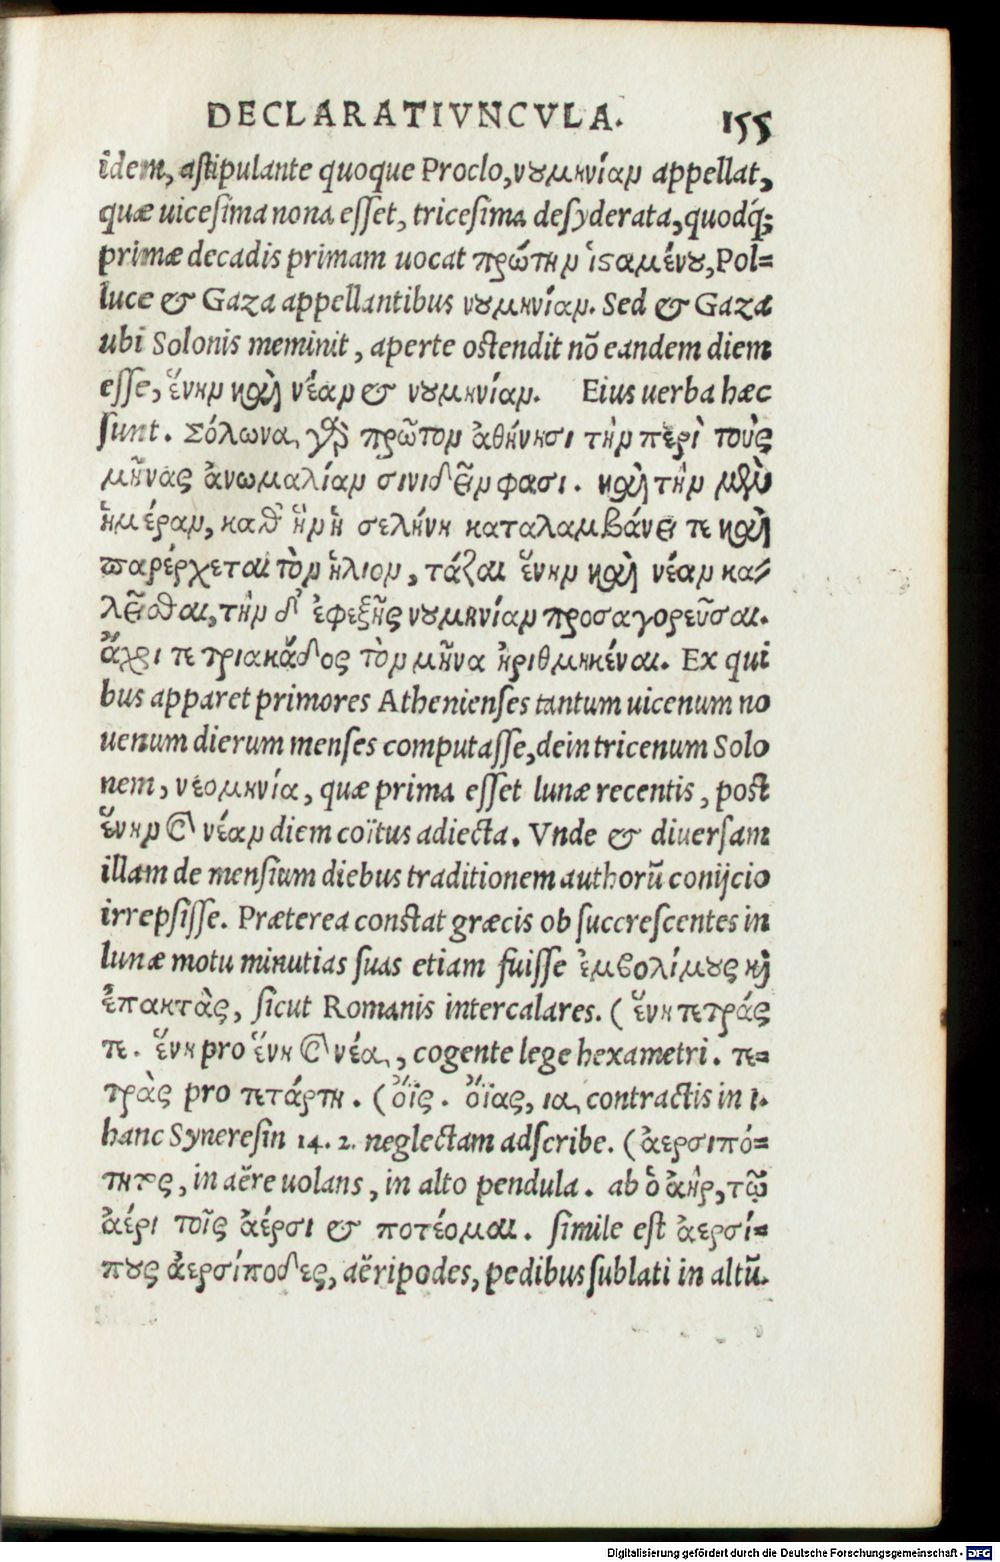 DECLARATIVNCVLA. 155
idem, astipulante quoque Proclo, νουμηνίαν appellat,
quæ uicesima nona esset, tricesima desyderata, quodq́;
primæ decadis primam uocat πρώτην ἱσταμένου, Pol=
luce & Gaza appellantibus νουμηνίαν. Sed & Gaza
ubi Solonis meminit, aperte ostendit nõ eandem diem
esse, ἕνην καὶ νέαν & νουμηνίαν. Eius uerba hæc
sunt. Σόλωνα γὰρ πρῶτον ἀθήνησι τὴν περὶ τοὺς
μῆνας ἀνωμαλίαν σινιδεῖν φασι. καὶ τὴν μὲν
ἡμέραν, καθ' ἣν ἡ σελήνη καταλαμβάνει τε καὶ
παρέρχεται τὸν ἥλιον, τάξαι ἕνην καὶ νέαν κα=
λεῖσθαι, τὴν δ' ἐφεξῆς νουμηνίαν προσαγορεῦσαι.
ἄχρι τε τριακάδος τὸν μῆνα ἠριθμηκέναι. Ex qui
bus apparet primores Athenienses tantum uicenum no
uenum dierum menses computasse, dein tricenum Solo
nem, νεομηνία, quæ prima esset lunæ recentis, post
ἕνην & νέαν diem coïtus adiecta. Vnde & diuersam
illam de mensium diebus traditionem authorũ conijcio
irrepsisse. Præterea constat græcis ob succrescentes in
lunæ motu minutias suas etiam fuisse ἐμβολίμους κὶ
ἐπακτὰς, sicut Romanis intercalares. (ἕνη τετράς
τε. ἕνη pro ἕνη & νέα, cogente lege hexametri. τε=
τρὰς pro τετάρτη. (ὄϊς. ὄϊας, ια contractis in ι.
hanc Syneresin 14. 2. neglectam adscribe. (ἀερσιπό=
τητος, in aëre uolans, in alto pendula. ab ὁ ἀὴρ, τῷ
ἀέρι τοῖς ἀέρσι & ποτέομαι. simile est ἀερσί=
πους ἀερσίποδες, aëripodes, pedibus sublati in altũ.
Digitalisierung gefördert durch die Deutsche Forschungsgemeinschaft - DFG